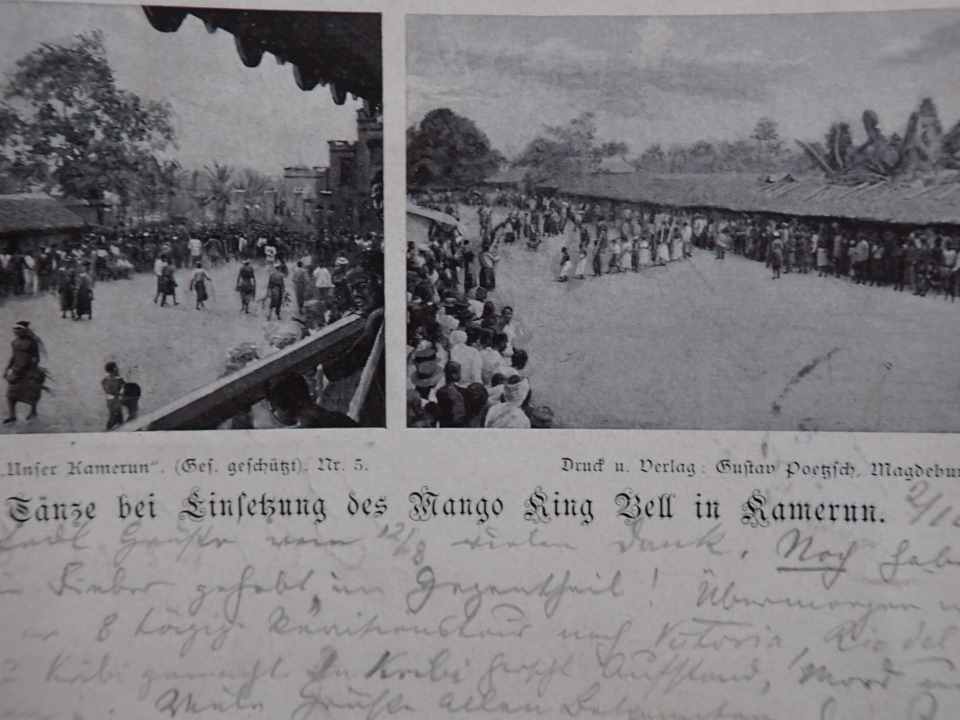 „Unser Kamerun“. (Ges. geschützt). Nr. 5.
Druck u. Verlag: Gustav Poetzsch, Magdebur
Tänze bei Einsetzung des Mango King Bell in Kamerun.
Grüße vom 12/8 vielen Dank. Noch habe
Fieber gehabt, im Gegentheil! Übermorgen
8 tägige Revisionstour nach Victoria, Rio del
Kribi gemacht. In Kribi herrscht Aufstand, Mord
Viele Grüße allen Bekannten